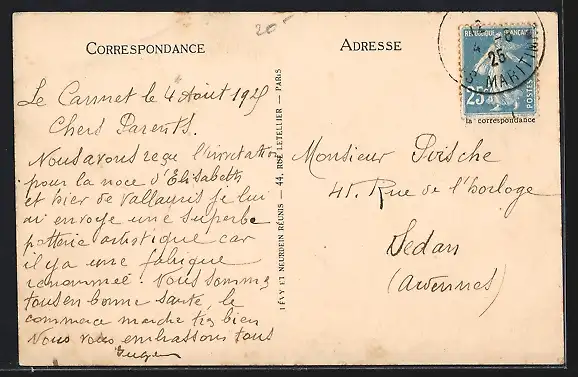 20-
CORRESPONDANCE
Le Cannet le 4 Aout 1925
Chers Parents.
Nous avons reçu l'invitation
pour la noce d'Elisabeth
et hier de Vallauris je lui
ai envoyé une superbe
potterie artistique car
il y a une fabrique
renommée. Nous sommes
tous en bonne santé, le
commerce marche très bien
Nous vous embrassons tous
Eugen
LÉVY ET NEURDEIN RÉUNIS — 44, RUE LETELLIER — PARIS
ADRESSE
4 - 8
25
MARITIM
REPUBLIQUE FRANÇAISE
25c
POSTES
la correspondance
Monsieur
41. Rue de l'horloge
Sedan
(Ardennes)